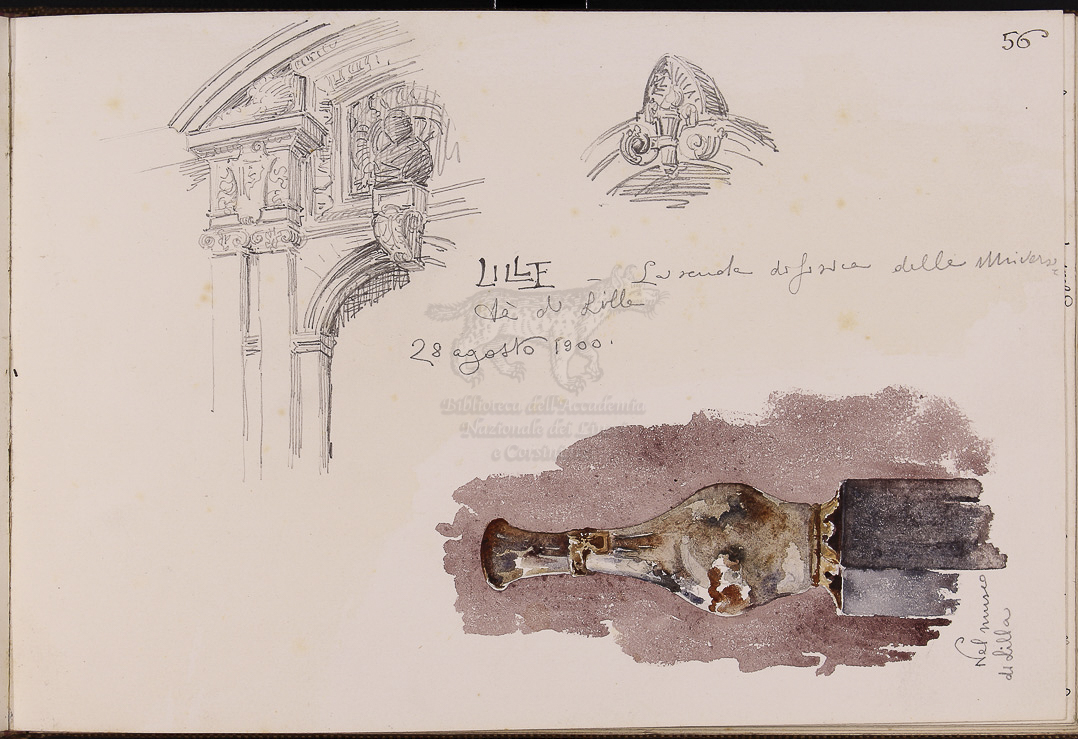 56
LILLE - La scuola di fisica della Universi
tà di Lilla
28 agosto 1900.
Biblioteca dell'Accademia
Nazionale dei Lincei
e Corsiniana
Nel museo
di Lilla